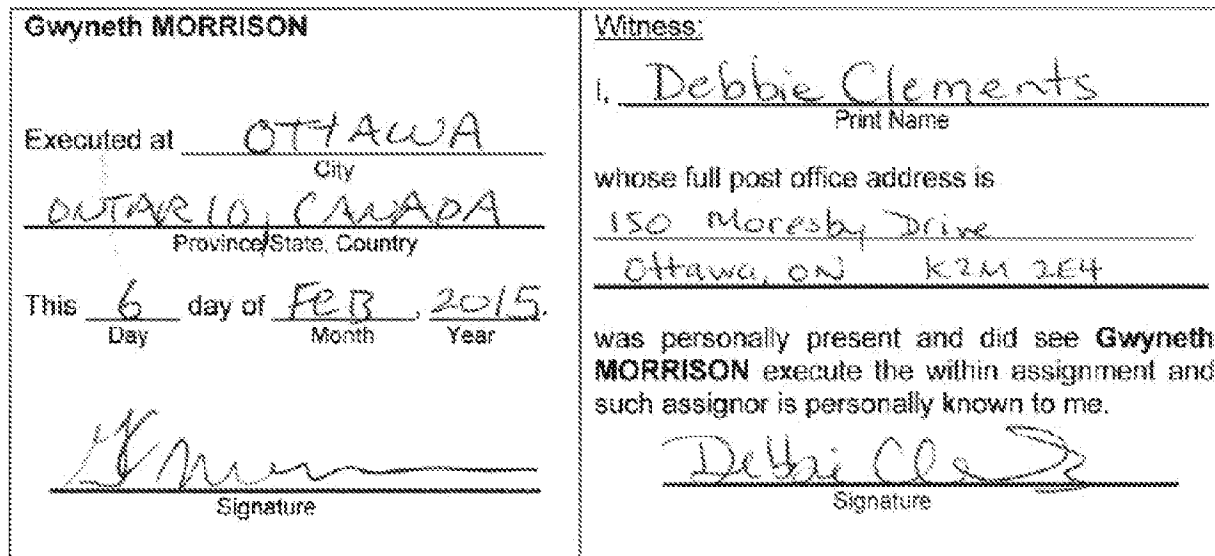 Gwyneth MORRISON
Executed at OTTAWA
City
ONTARIO, CANADA
Province/State, Country
This 6 day of FEB, 2015.
Day Month Year
Signature
Witness:
I, Debbie Clements
Print Name
whose full post office address is
150 Moresby Drive
Ottawa, ON K2M 2E4
was personally present and did see Gwyneth
MORRISON execute the within assignment and
such assignor is personally known to me.
Debbie
Signature